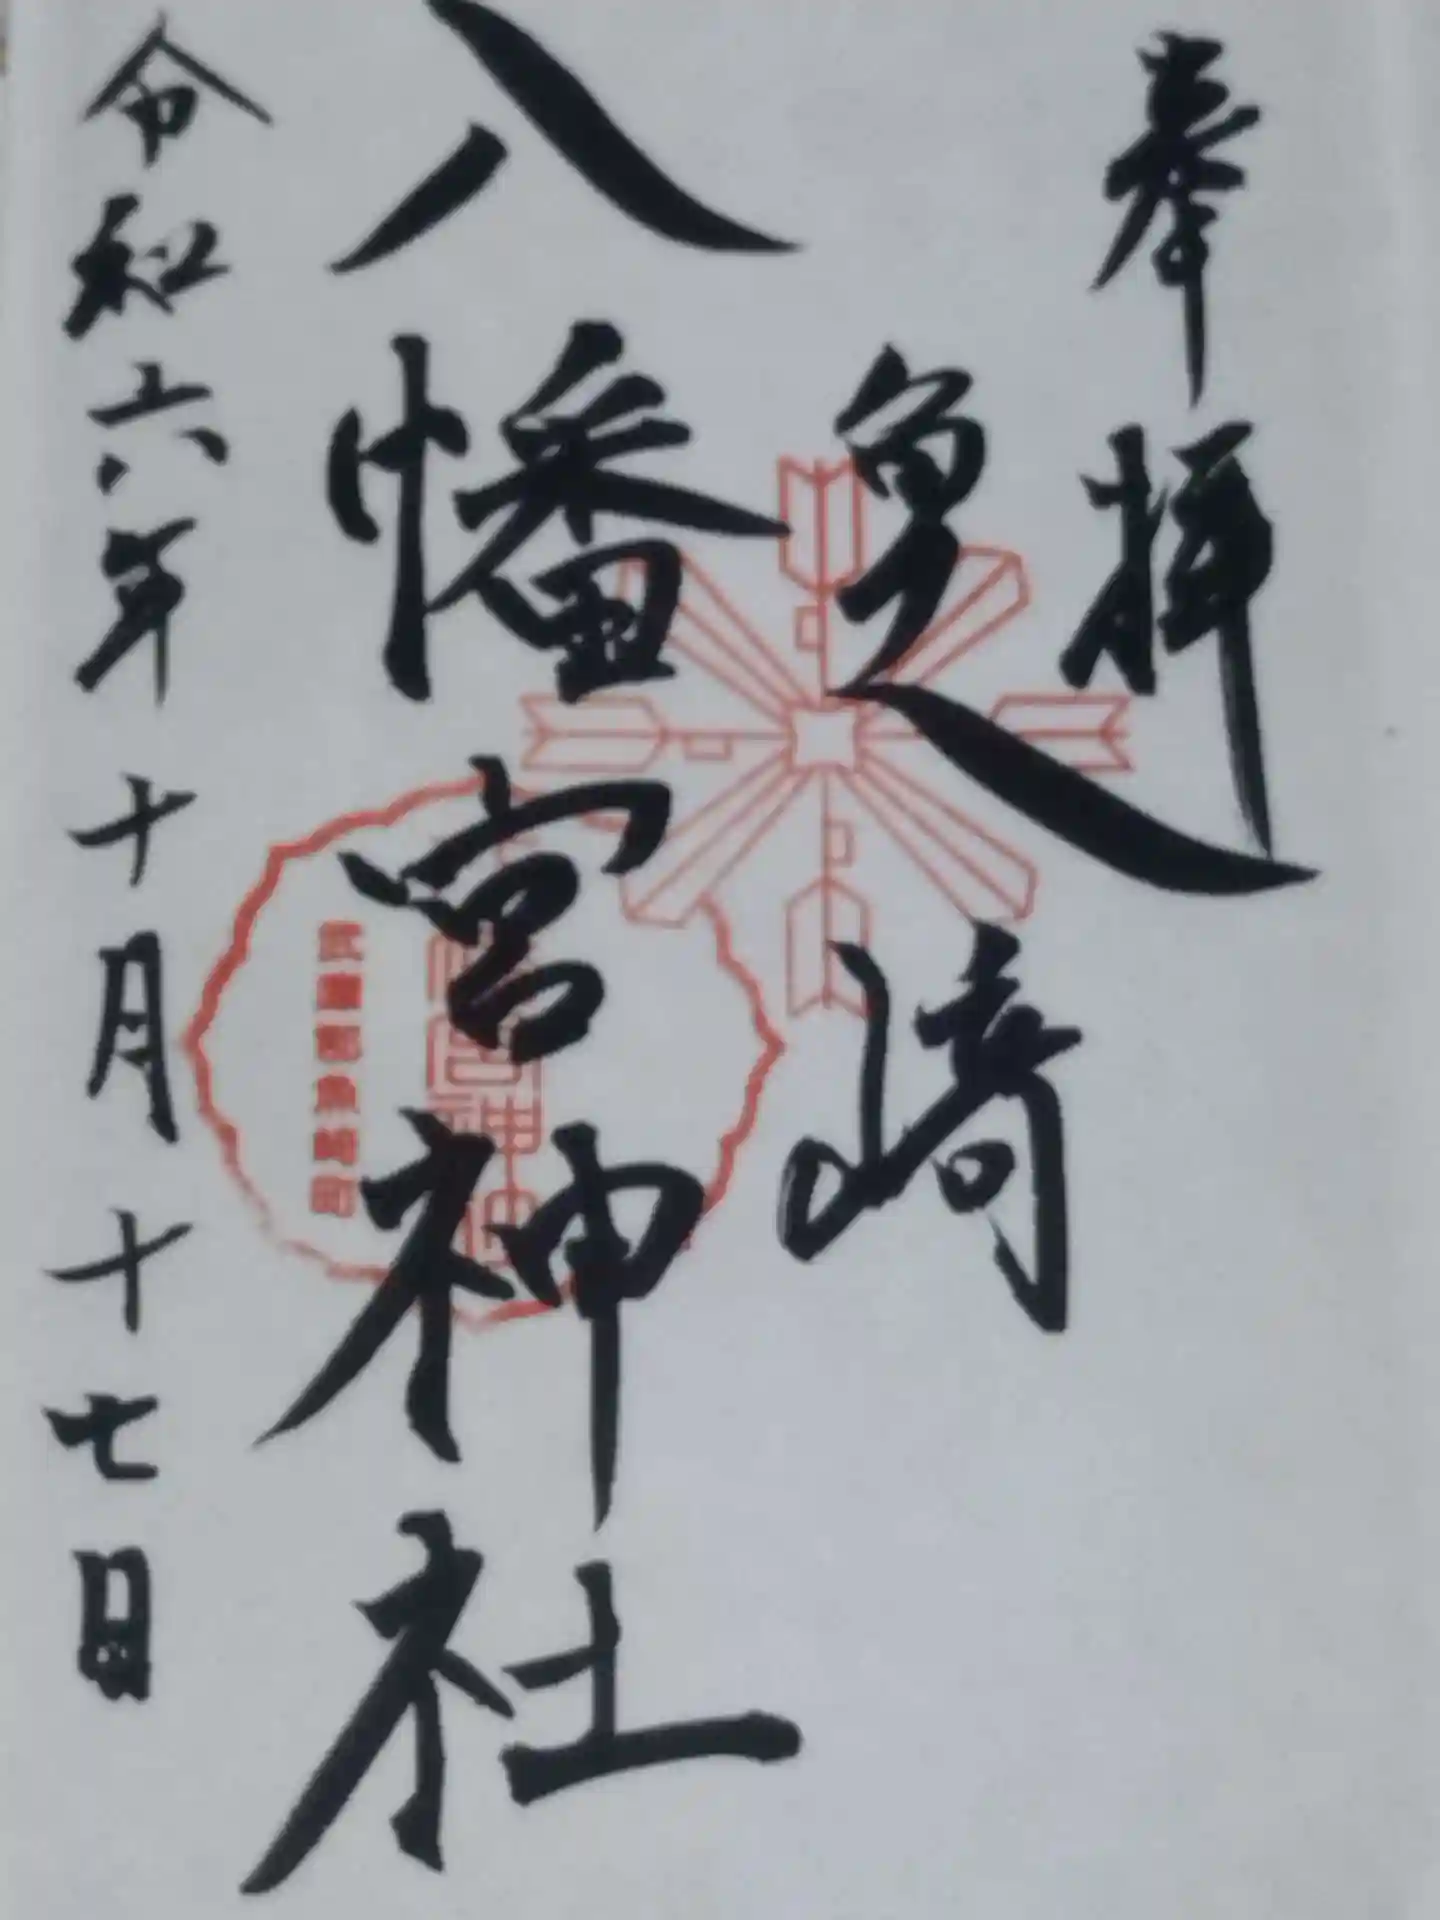 奉拝
魚崎
八幡宮神社
武庫郡魚崎町
令和六年十月十七日